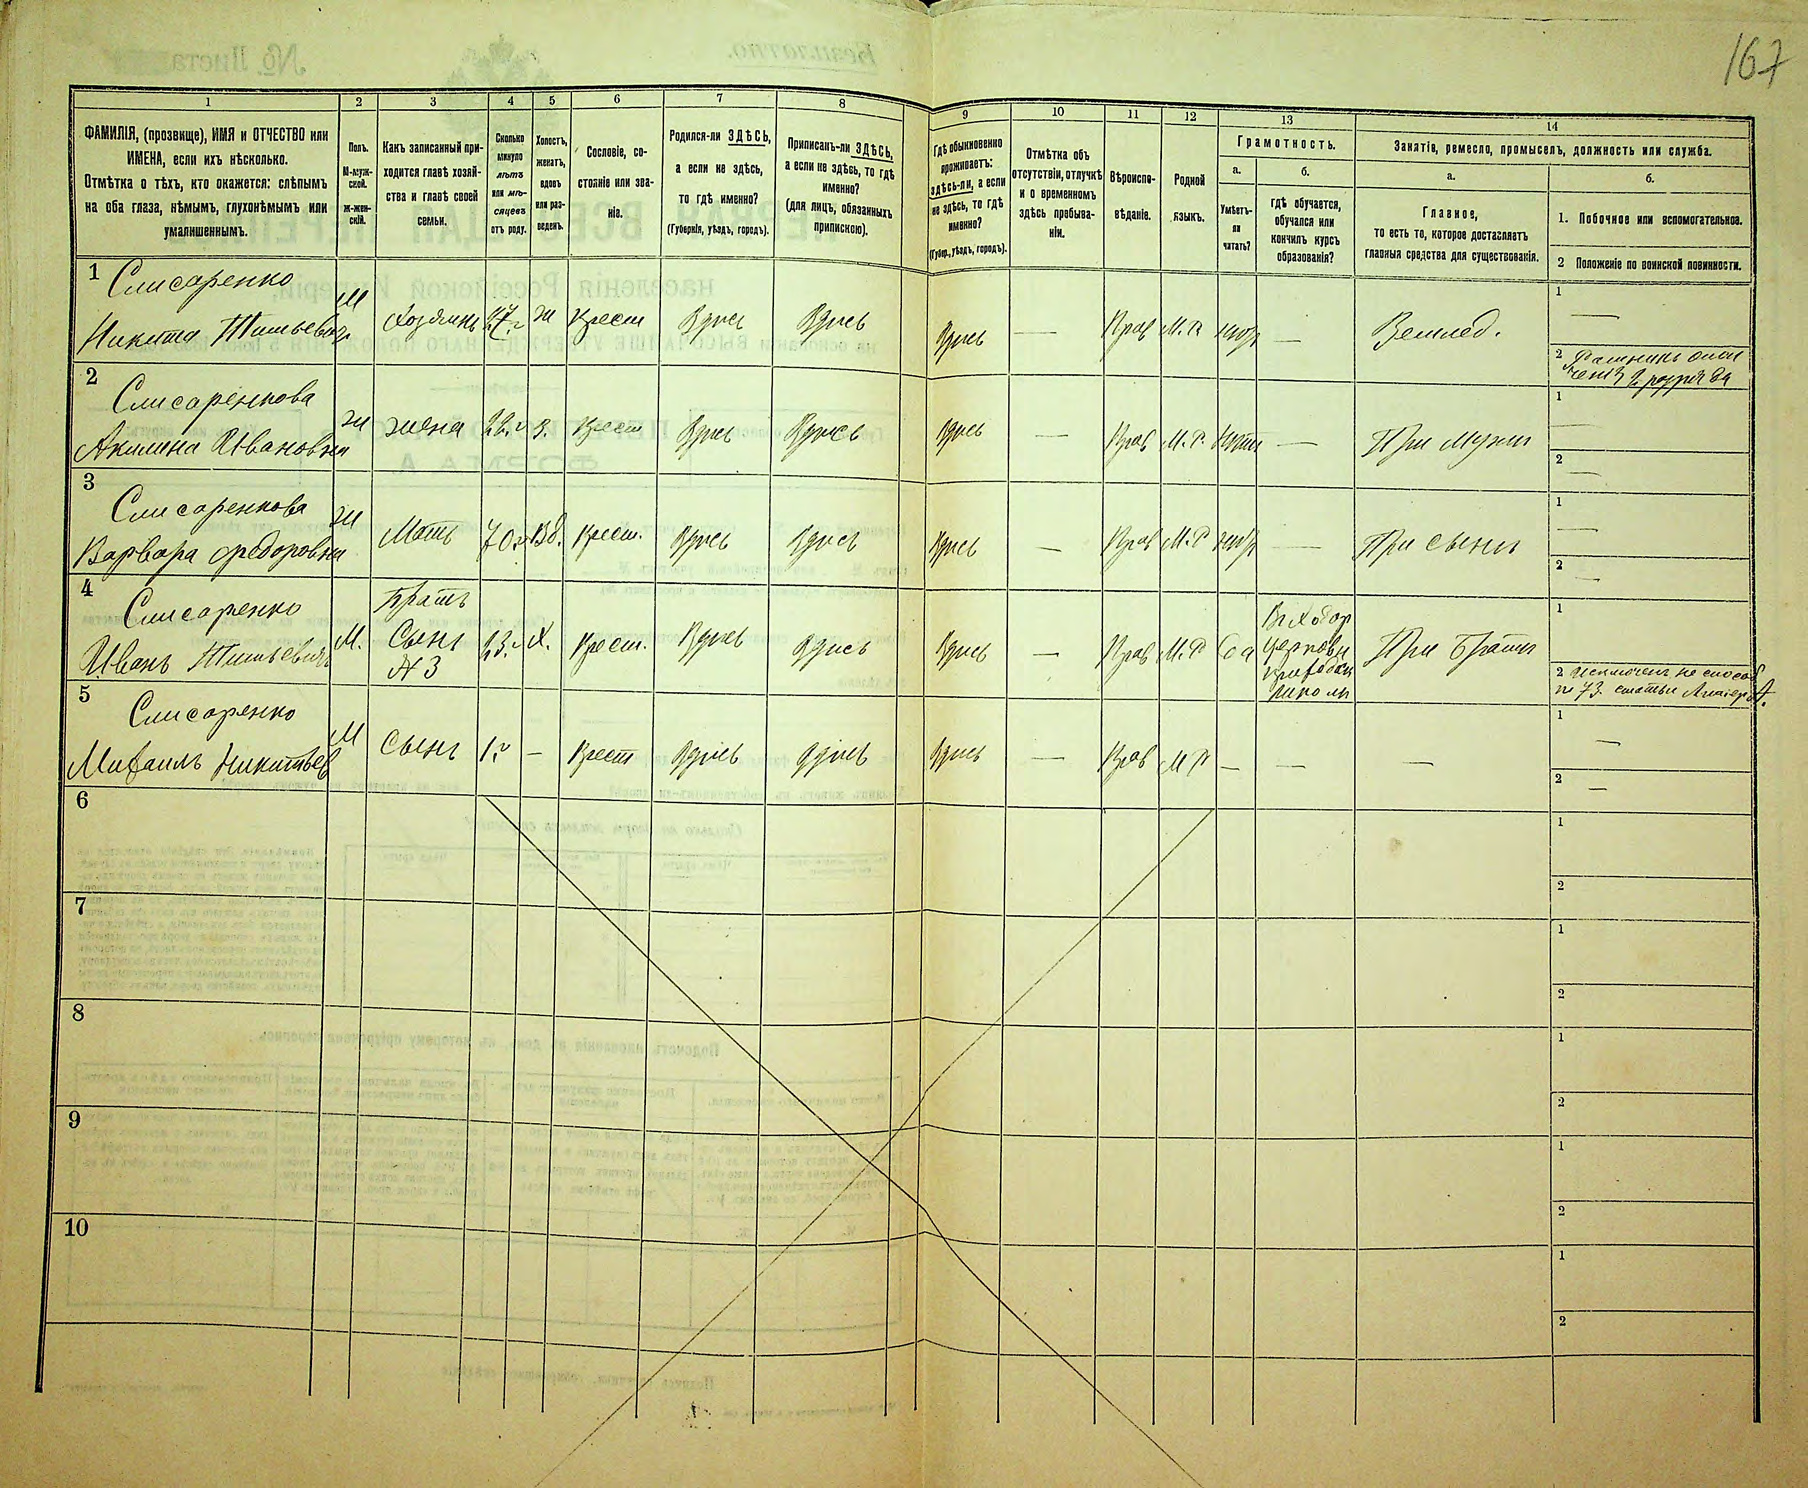 167
1 2 3 4 5 6 7 8 9 10 11 12 13 14
ФАМИЛІЯ, (прозвище), ИМЯ и ОТЧЕСТВО или
ИМЕНА, если ихъ нѣсколько.
Отмѣтка о тѣхъ, кто окажется: слѣпымъ
на оба глаза, нѣмымъ, глухонѣмымъ или
умалишеннымъ.
Полъ.
М-муж-
ской.
Ж-жен-
скій.
Какъ записанный при-
ходится главѣ хозяй-
ства и главѣ своей
семьи.
Сколько
минуло
лѣтъ
или мѣ-
сяцевъ
отъ роду.
Холостъ,
женатъ,
вдовъ
или раз-
веденъ.
Сословіе, со-
стояніе или зва-
ніе.
Родился-ли ЗДѢСЬ,
а если не здѣсь,
то гдѣ именно?
(Губернія, уѣздъ, городъ).
Приписанъ-ли ЗДѢСЬ,
а если не здѣсь, то гдѣ
именно?
(для лицъ, обязанныхъ
припискою).
Гдѣ обыкновенно
проживаетъ:
здѣсь-ли, а если
не здѣсь, то гдѣ
именно?
(Губер., уѣздъ, городъ).
Отмѣтка объ
отсутствіи, отлучкѣ
и о временномъ
здѣсь пребыва-
ніи.
Вѣроиспо-
вѣданіе.
Родной
языкъ.
Грамотность.
а.
Умѣетъ-
ли
читать?
б.
гдѣ обучается,
обучался или
кончилъ курсъ
образованія?
Занятіе, ремесло, промыселъ, должность или служба.
а.
Главное,
то есть то, которое доставляетъ
главныя средства для существованія.
б.
1. Побочное или вспомогательное.
2 Положеніе по воинской повинности.
1 Слисаренко
Никита Титьевич М Хозяинъ 27 г ж Крест Здѣсь Здѣсь Здѣсь — Прав М. Р — Землед.
1 —
2 Ратникъ опол
чения 2 разряда
2 Слисаренкова
Акилина Ивановна ж жена 22 г З. Крест Здѣсь Здѣсь Здѣсь — Прав М. Р. — При мужи
1 —
2 —
3 Слисаренкова
Варвара Федоровна ж Мать 70 г Вд. Крест. Здѣсь Здѣсь Здѣсь — Прав М. Р — При сыни
1 —
2 —
4 Слисаренко
Иванъ Титьевичъ М. Братъ
Сынъ
№ 3 23 г Х. Крест. Здѣсь Здѣсь Здѣсь — Прав М. Р
церковн
приходск
школи При Брати
1
2 исключенъ не способ
по 73 статьи
5 Слисаренко
Михаилъ Никитьев М Сынъ 1 г — Крест Здѣсь Здѣсь Здѣсь — Прав М Р — — —
1 —
2 —
6
1
2
7
1
2
8
1
2
9
1
2
10
1
2